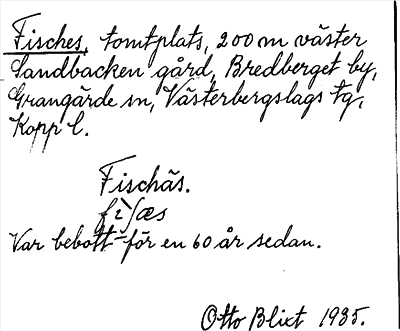 Fisches, tomtplats, 200 m väster
Sandbacken gård, Bredberget by,
Grangärde sn, Västerbergslags tg,
Kopp l.
Fischäs.
fìʃæs
Var bebott för en 60 år sedan.
Otto Blixt 1935.